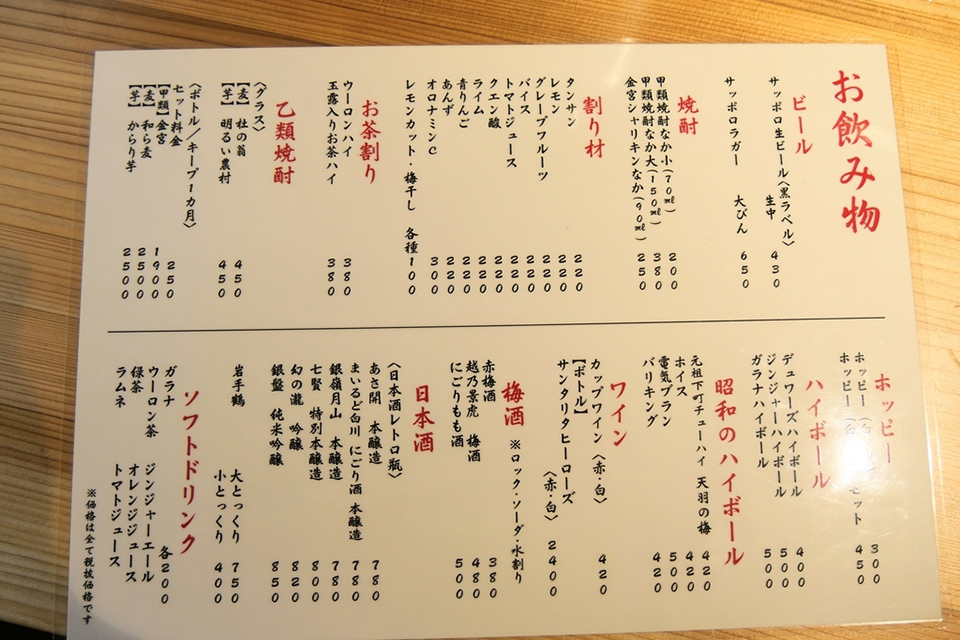 お飲み物
ビール
サッポロ生ビール〈黒ラベル〉 生中 430
サッポロラガー 大びん 650
焼酎
甲類焼酎なか小(70㎖) 200
甲類焼酎なか大(150㎖) 380
金宮シャリキンなか(90㎖) 250
割り材
タンサン 220
レモン 220
グレープフルーツ 220
バイス 220
トマトジュース 220
クエン酸 220
ライム 220
青りんご 220
あんず 220
オロナミンC 300
レモンカット・梅干し 各種100
お茶割り
ウーロンハイ 380
玉露入りお茶ハイ 380
乙類焼酎
〈グラス〉
【麦】 杜の翁 450
【芋】 明るい農村 450
〈ボトル/キープ1カ月〉
セット料金 250
【甲類】金宮 1900
【麦】 和ら麦 2500
【芋】 からり芋 2500
ホッピー
ホッピー 300
ホッピー セット 450
ハイボール
デュワーズハイボール 400
ジンジャーハイボール 500
ガラナハイボール 500
昭和のハイボール
元祖下町チューハイ 天羽の梅 420
ホイス 420
電気ブラン 500
バリキング 420
ワイン
カップワイン〈赤・白〉 420
【ボトル】
サンタリタヒーローズ〈赤・白〉 2400
梅酒 ※ロック・ソーダ・水割り
赤梅酒 380
越乃景虎 梅酒 480
にごりもも酒 500
日本酒
〈日本酒レトロ瓶〉
あさ開 本醸造 780
まいるど白川 にごり酒 本醸造 780
銀嶺月山 本醸造 780
七賢 特別本醸造 800
幻の瀧 吟醸 820
銀盤 純米吟醸 850
岩手鶴 大とっくり 750
小とっくり 400
ソフトドリンク
各200
ガラナ ジンジャーエール
ウーロン茶 オレンジジュース
緑茶 トマトジュース
ラムネ
※価格は全て税抜価格です